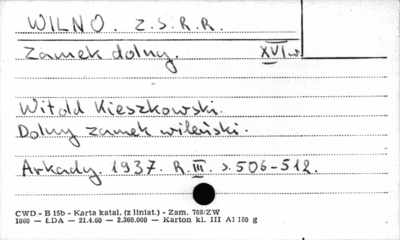 WILNO. Z.S.R.R.
Zamek dolny. XVI w
Witold Kieszkowski.
Dolny zamek wileński.
Arkady. 1937. R. III. s. 506-512.
CWD - B 15b - Karta katal. (z liniat.) - Zam. 788/ZW
1060 — ŁDA — 21.4.60 — 2.360.000 — Karton kl. III A1 160 g